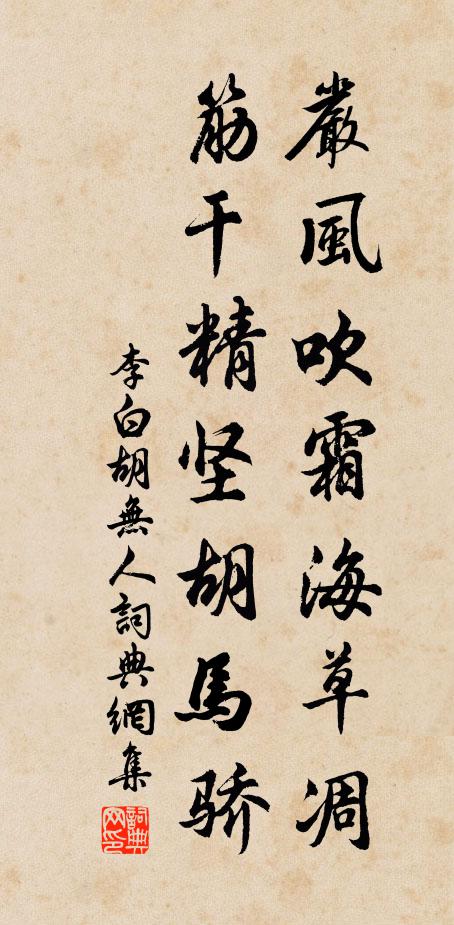 嚴風吹霜海草凋
筋干精坚胡馬骄
李白胡無人詞典網集
詞典网印